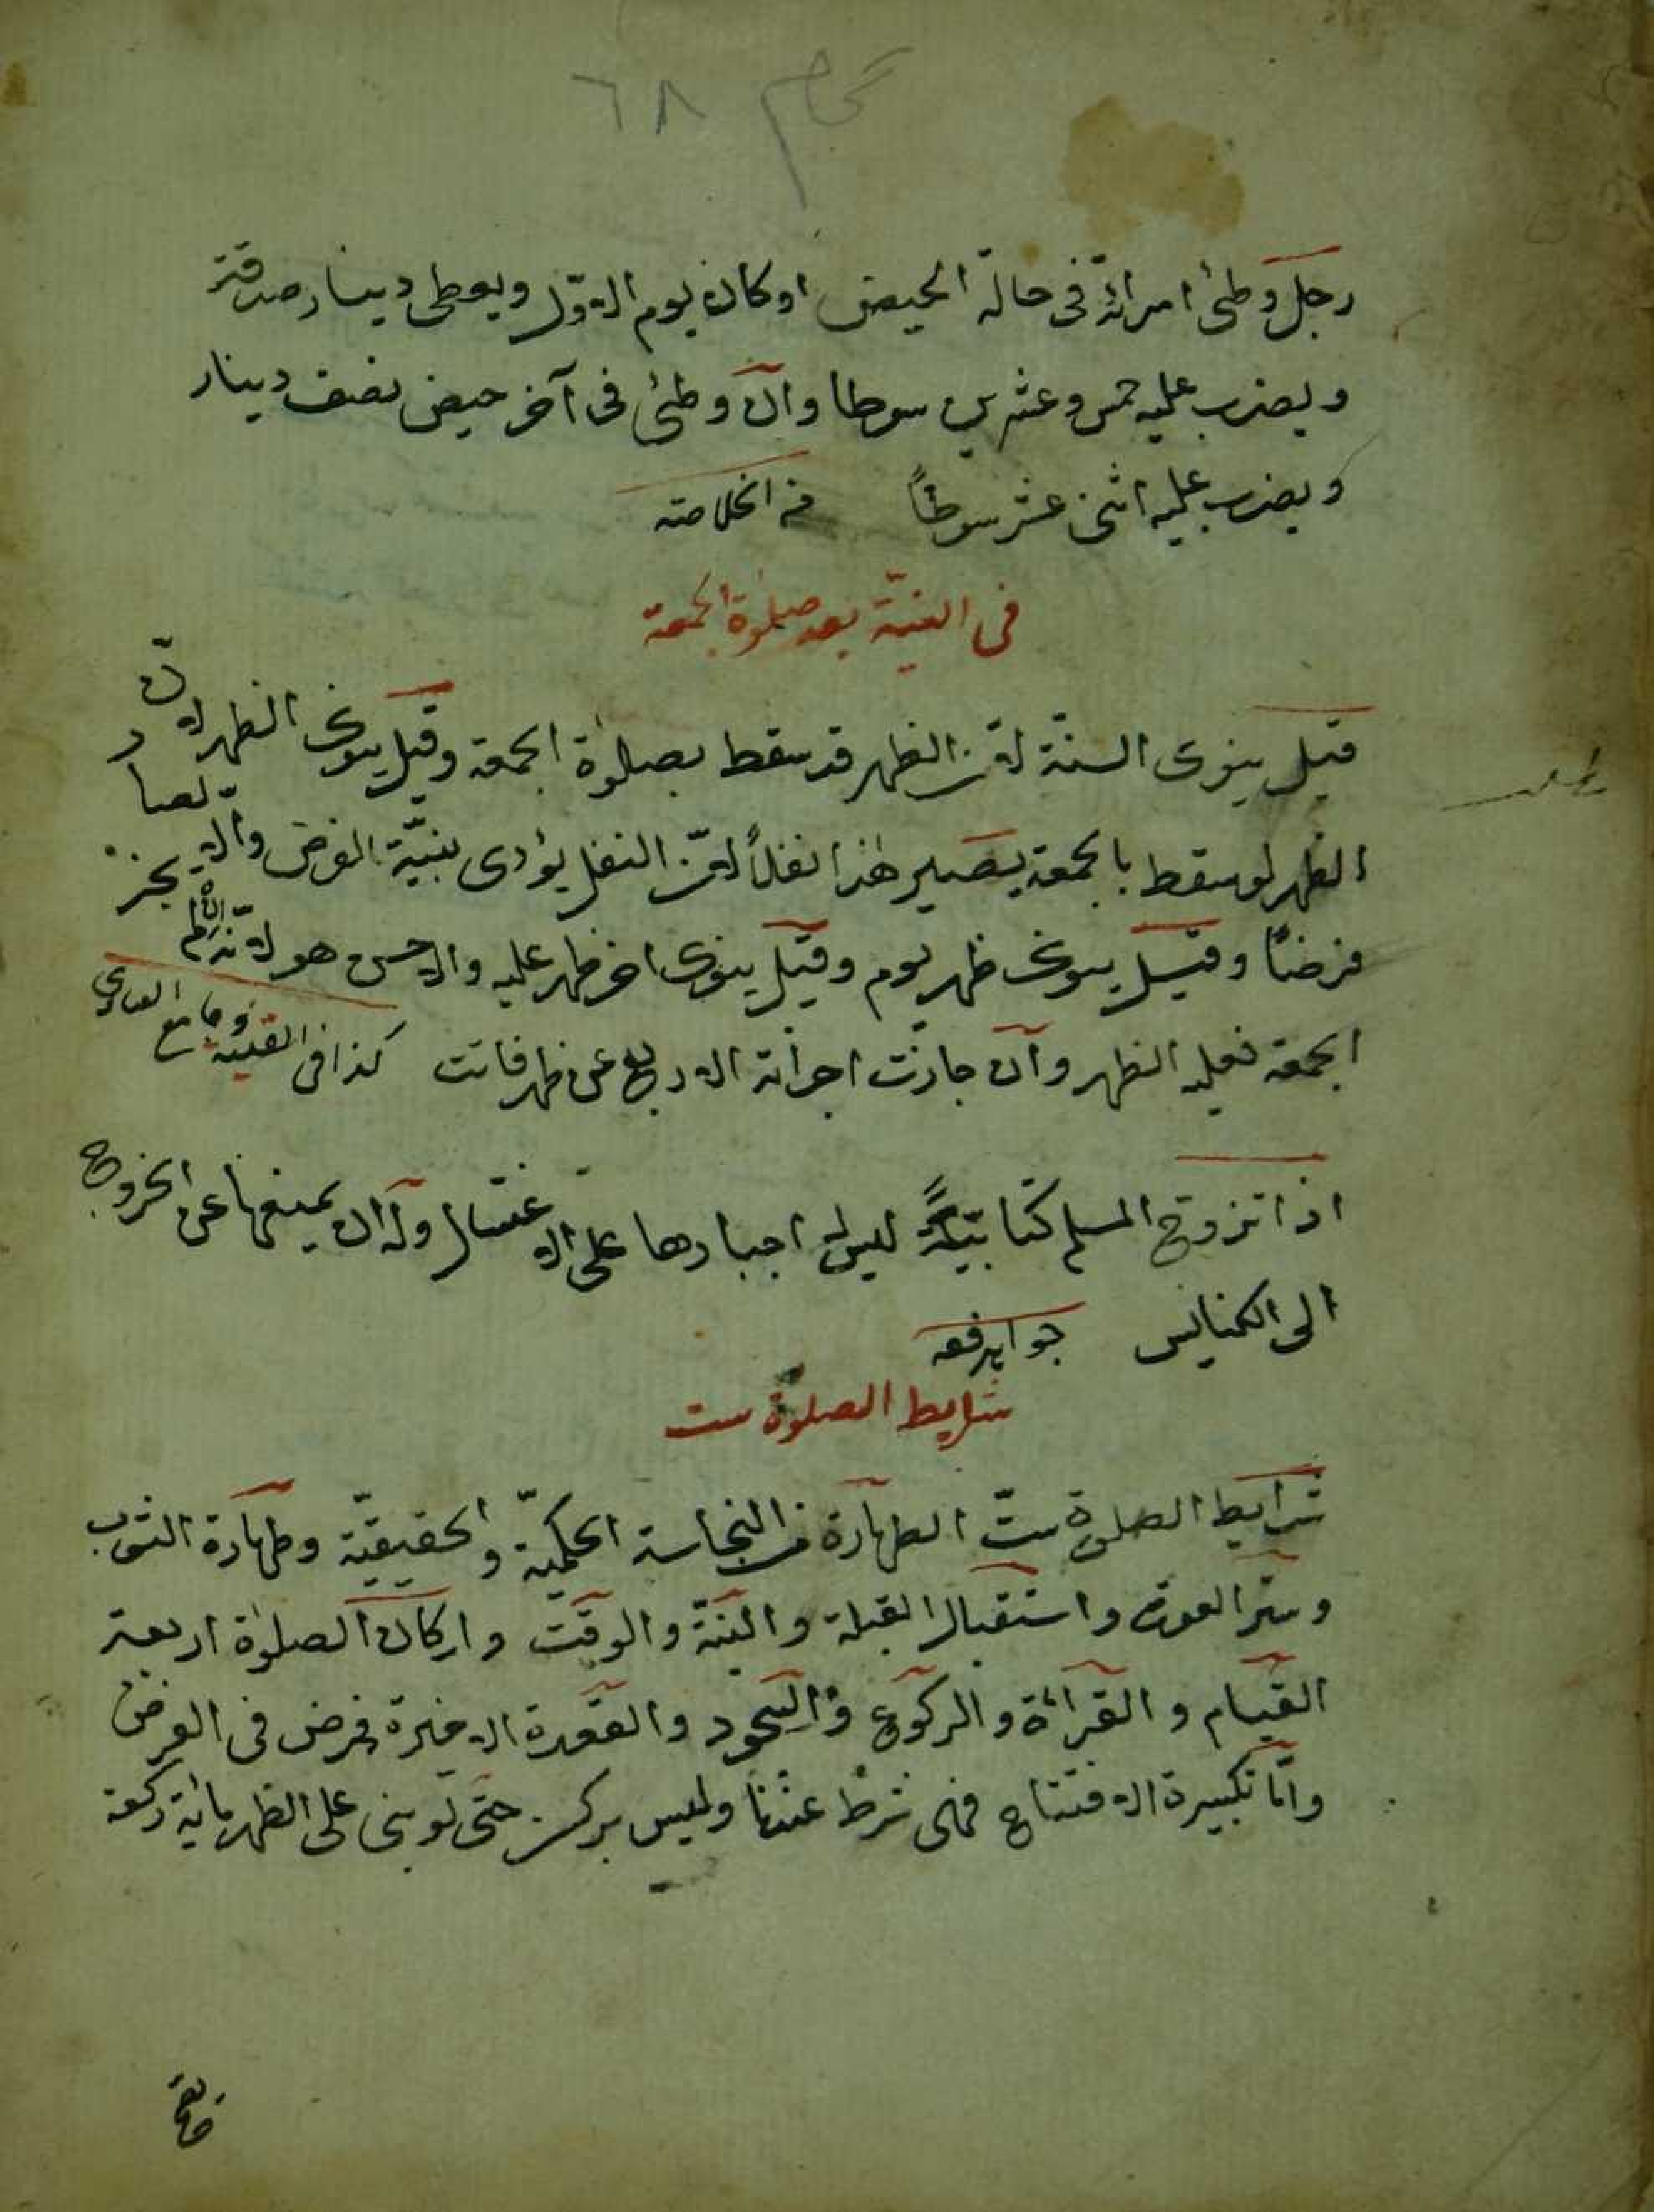 ٦٨
رجل وطئ امرأته فى حالة الحيض او كان يوم الاول ويعطى دينار صدقة
ويضرب عليه خمس وعشرين سوطا وان وطئ فى آخر حيض نصف دينار
ويضرب عليه اثنى عشر سوطاً من الخلاصة
فى النيّة بعد صلوة الجمعة
قيل ينوى السنة لان الظهر قد سقط بصلوة الجمعة وقيل ينوى الظهر لانّ
الظهر لو سقط بالجمعة يصير هذا نفلاً لانّ النفل يؤدى بنيّة الفرض والا لصار
فرضاً وقيل ينوى ظهر يوم وقيل ينوى اخر ظهر عليه والاحسن هو لانّه ان لم يجز
الجمعة فعليه الظهر وان جازت اجزأته الاربع عن ظهر فائت كذا فى القنية وجامع الفتاوى
اذا تزوج المسلم كتابيّةً ليس له اجبارها على الاغتسال وله ان يمنعها عن الخروج
الى الكنايس
شرايط الصلوة ست
شرايط الصلوة ستّ الطهارة من النجاسة الحكميّة والحقيقيّة وطهارة الثوب
وستر العورة واستقبال القبلة والنيّة والوقت واركان الصلوة اربعة
القيام والقرائة والركوع والسجود والقعدة الاخيرة فرض فى الفرض
وامّا تكبيرة الافتتاح فهى شرط عندنا وليس بركن حتى لو بنى على الظهر مائة ركعة